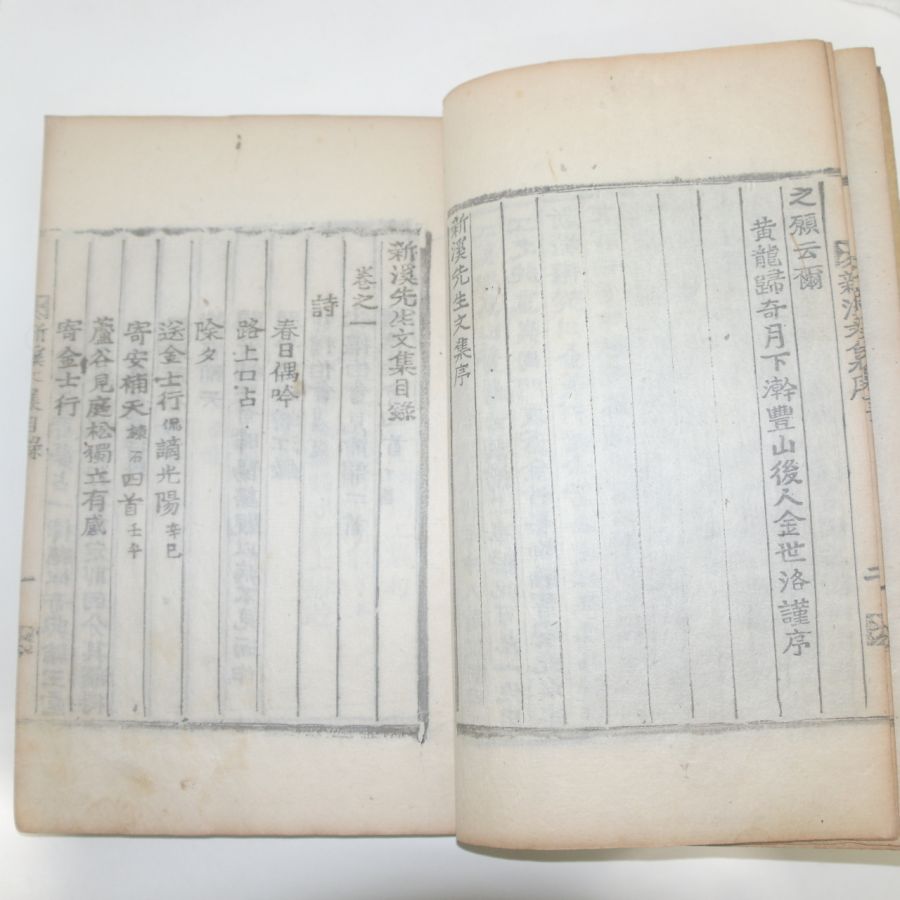 新溪文集序
二
之願云爾
黃龍歸奇月下澣豐山後人金世洛謹序
新溪先生文集序
新溪先生文集目錄
卷之一
詩
春日偶吟
路上口占
除夕
送金士行侃謫光陽辛巳
寄安補天鍊石四首壬午
蘆谷見庭松獨立有感
寄金士行
新溪文集目錄
一